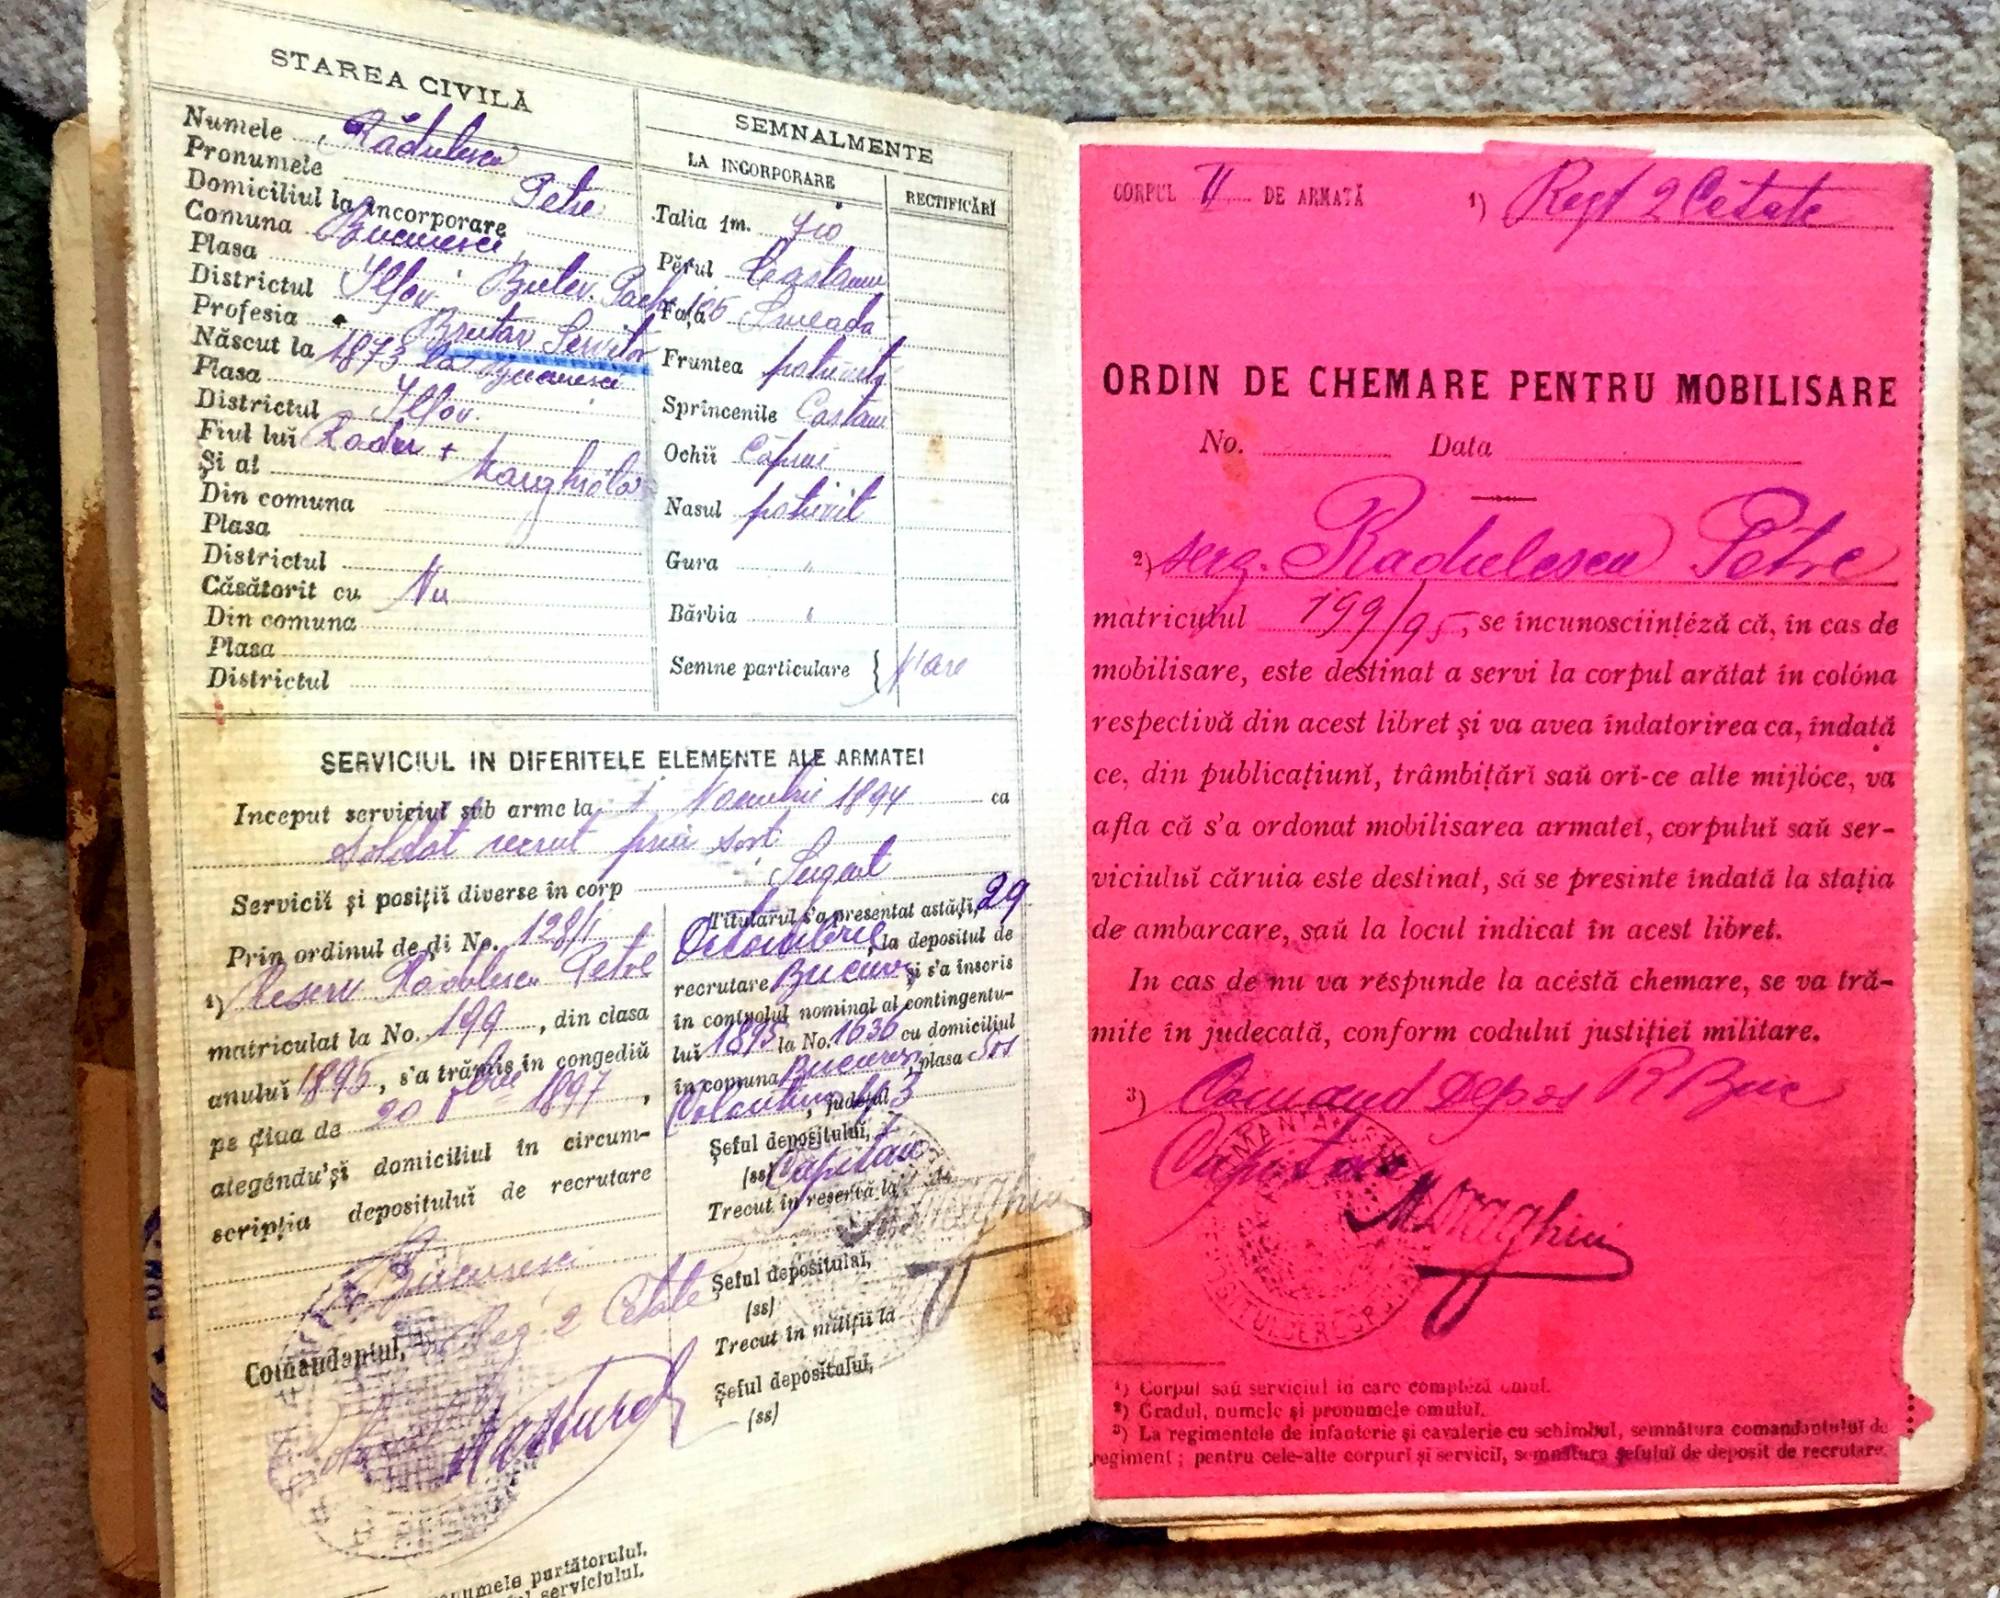 STAREA CIVILĂ
Numele Rădulescu
Pronumele Petre
Domiciliul la incorporare
Comuna Bucuresci
Plasa
Districtul Ilfov. Bulev. Pache
Profesia Brutar Servitor
Născut la 1873 la Bucuresci
Plasa
Districtul Ilfov.
Fiul luĭ Radu +
Şi al Marghiola
Din comuna
Plasa
Districtul
Căsătorit cu Nu
Din comuna
Plasa
Districtul
SEMNALMENTE
LA INCORPORARE
RECTIFICĂRĬ
Talia 1m. 710
Pĕrul Castaniu
Faţa Smeada
Fruntea potrivită
Sprîncenile Castani
Ochiĭ Căprui
Nasul potrivit
Gura "
Bărbia "
Semne particulare { N'are
SERVICIUL IN DIFERITELE ELEMENTE ALE ARMATEI
Inceput serviciul sub arme la 1 Noembrie 1894 ca
Soldat recrut prin sort
Serviciĭ şi posiţiĭ diverse în corp Sergent
Prin ordinul de ḑi No. 128/1
1) Reserv Radulescu Petre
matriculat la No. 199, din clasa
anuluĭ 1895, s'a trămis în congediŭ
pe ḑiua de 20 1897,
alegêndu'şĭ domiciliul în circum-
scripţia depozituluĭ de recrutare
Bucuresci
Reg. 2 Cetate
Comandantul,
Titularul s'a presentat astăḑi, 29
Octombrie, la depositul de
recrutare Bucur şi s'a înscris
în controlul nominal al contingentu-
luĭ 1895 la No. 1636 cu domiciliul
în comuna Bucuresci, plasa Sos
Colentina 113, judeţul
Şeful depozituluĭ,
(ss) Capitan
Trecut în reservă la
Şeful depozituluĭ,
(ss)
Trecut în miliţiĭ la
Şeful depozituluĭ,
(ss)
onumele purtătoruluĭ.
serviciuluĭ.
CORPUL II DE ARMATĂ 1) Regt 2 Cetate
ORDIN DE CHEMARE PENTRU MOBILISARE
No. Data
2) serg. Radulescu Petre
matriculul 199/95, se încunosciinţéză că, în cas de
mobilisare, este destinat a servi la corpul arătat în colóna
respectivă din acest libret şi va avea îndatorirea ca, îndată
ce, din publicaţiunĭ, trâmbiţărĭ saŭ orĭ-ce alte mijlóce, va
afla că s'a ordonat mobilisarea armateĭ, corpuluĭ saŭ ser-
viciuluĭ căruia este destinat, să se presinte îndată la staţia
de ambarcare, saŭ la locul indicat în acest libret.
In cas de nu va rĕspunde la acéstă chemare, se va tră-
mite în judecată, conform coduluĭ justiţieĭ militare.
3) Comand Depos R Buc
Capitan
1) Corpul saŭ serviciul în care compléză omul.
2) Gradul, numele şi pronumele omuluĭ.
3) La regimentele de infanterie şi cavalerie cu schimbul, semnătura comandantuluĭ de
regiment; pentru cele-alte corpurĭ şi serviciĭ, semnătura şefuluĭ de deposit de recrutare.